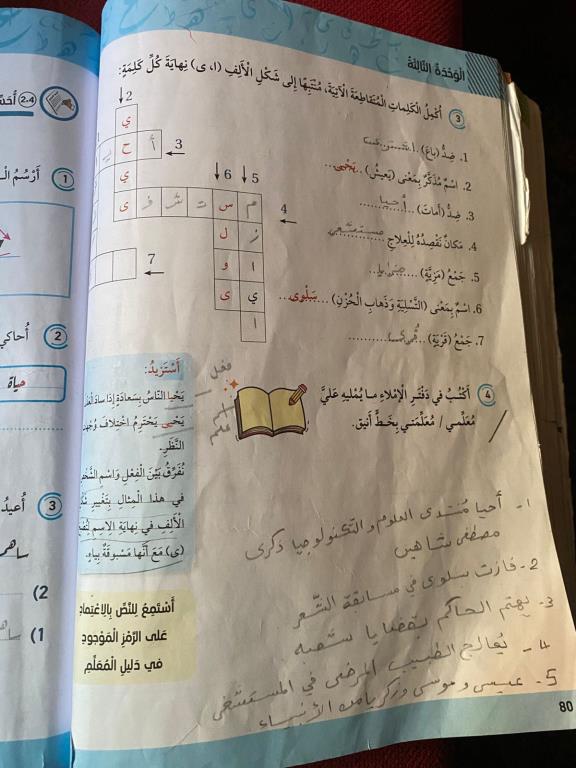 الْوَحْدَةُ الثّالِثَةُ
3 أُكْمِلُ الْكَلِماتِ الْمُتَقاطِعَةَ الْآتِيَةَ، مُنْتَبِهًا إِلى شَكْلِ الْأَلِفِ (ا، ى) نِهايَةَ كُلِّ كَلِمَةٍ:
1. ضِدُّ (باعَ)
2. اسْمٌ مُذَكَّرٌ بِمَعْنى (يَعيشُ) ..يَحْيى..
3. ضِدُّ (أَماتَ) ..أحيا..
4. مَكانٌ نَقْصِدُهُ لِلْعِلاجِ مستشفى
5. جَمْعُ (مَزِيَّة) ..مزايا..
6. اسْمٌ بِمَعْنى (التَّسْلِيَةِ وَذَهابِ الْحُزْنِ) ..سَلْوى..
7. جَمْعُ (قَرْيَة) ..قُرى..
2
ي
ح
أ
3
ي
6
5
م
س
ت
ش
ف
ى
4
ز
ل
ا
و
7
ي
ى
ا
4 أَكْتُبُ في دَفْتَرِ الْإِمْلاءِ ما يُمْليهِ عَلَيَّ
مُعَلِّمي / مُعَلِّمَتي بِخَطٍّ أَنيقٍ.
أَسْتَزيدُ:
فعل
يَحْيا النّاسُ بِسَعادَةٍ إِذا سادَ
يَحْيى يَحْتَرِمُ اخْتِلافَ
علم
النَّظَرِ.
نُفَرِّقُ بَيْنَ الْفِعْلِ وَاسْمِ
في هذا الْمِثالِ بِتَغْييرِ
الْأَلِفِ في نِهايَةِ الِاسْمِ
(ى) مَعَ أَنَّها مَسْبوقَةٌ بِياءٍ.
أَسْتَمِعُ لِلنَّصِّ بِالِاعْتِمادِ
عَلى الرَّمْزِ الْمَوْجودِ
في دَليلِ الْمُعَلِّمِ
1- أحيا مُنتدى العلوم والتكنولوجيا ذكرى
مصطفى شاهين
2- فازت سلوى في مسابقة الشّعر
3- يهتم الحاكم بقضايا شعبه
4- يُعالج الطبيب المرضى في المستشفى
5- عيسى وموسى وزكريا من الأنبياء
80
2.4
1 أَرْسُمُ
2 أُحاكي
حياة
3 أُعيدُ
(2
(1